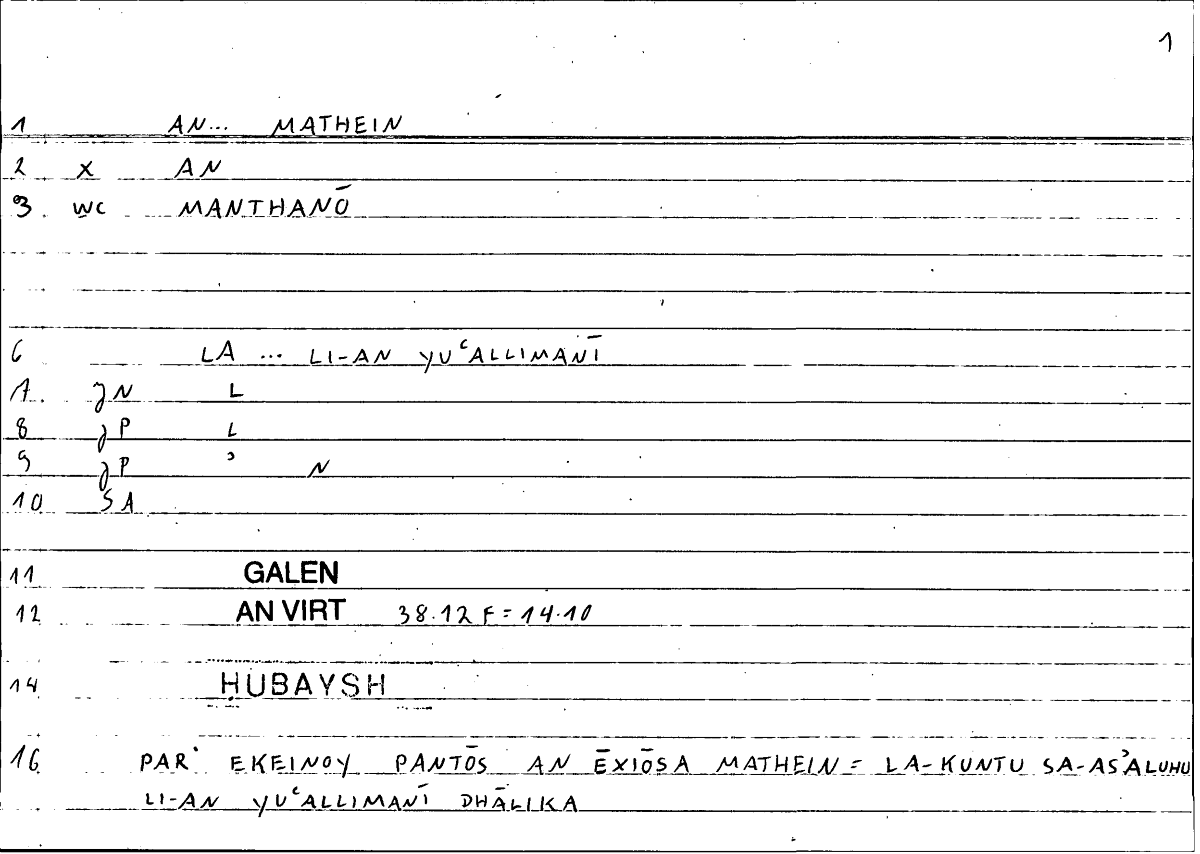 1
1 AN... MATHEIN
2 X AN
3. WC MANTHANŌ
6 LA ... LI-AN YUʿALLIMANĪ
7. JN L
8 JP L
9 JP ʾ N
10 SA
11 GALEN
12 AN VIRT 38.12 F = 14.10
14 ḤUBAYSH
16 PAR' EKEINOY PANTŌS AN ĒXIŌSA MATHEIN = LA-KUNTU SA-ASʾALUHU
LI-AN YUʿALLIMANĪ DHĀLIKA